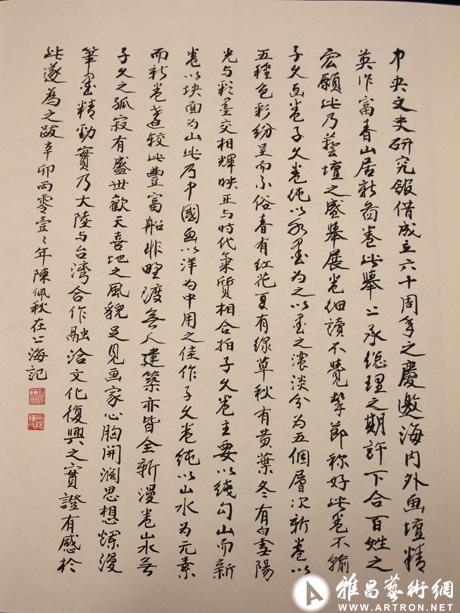 中央文史研究館借成立六十周年之慶邀海内外画壇精
英作富春山居新圖卷此舉上承總理之期許下合百姓之
宏願此乃藝壇之盛舉展卷細讀不覺擊節称好此卷不輸
子久舊卷子久卷純以水墨為之以墨之濃淡分為五個層次新卷以
五種色彩紛呈而不俗春有紅花夏有綠草秋有黄葉冬有白雪陽
光与彩墨交相輝映正与時代氣質相合拍子久卷主要以綫勾山而新
卷以块面為山此乃中國画以洋為中用之佳作子久卷純以山水為元素
而新卷蓋較此豐富船非野渡無人建築亦皆全新漫卷岀無
子久之孤寂有盛世歡天喜地之風貌足見画家心胸開濶思想爛漫
筆墨精勁實乃大陸与台湾合作融洽文化復興之實證有感於
此遂為之跋辛卯两零壹壹年陳佩秋在上海記
雅昌藝術網
WWW.ARTRON.NET